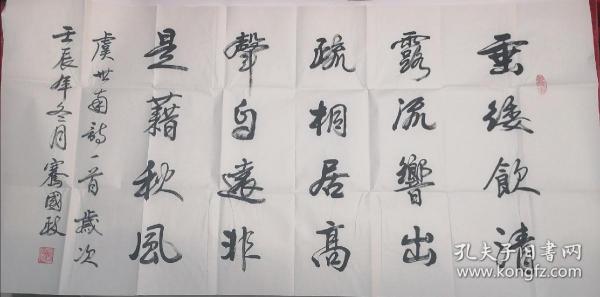 垂緌飲清
露流響出
疏桐居高
聲自遠非
是藉秋風
虞世南詩一首歲次
壬辰年冬月騫國政
孔夫子旧书网
www.kongfz.com